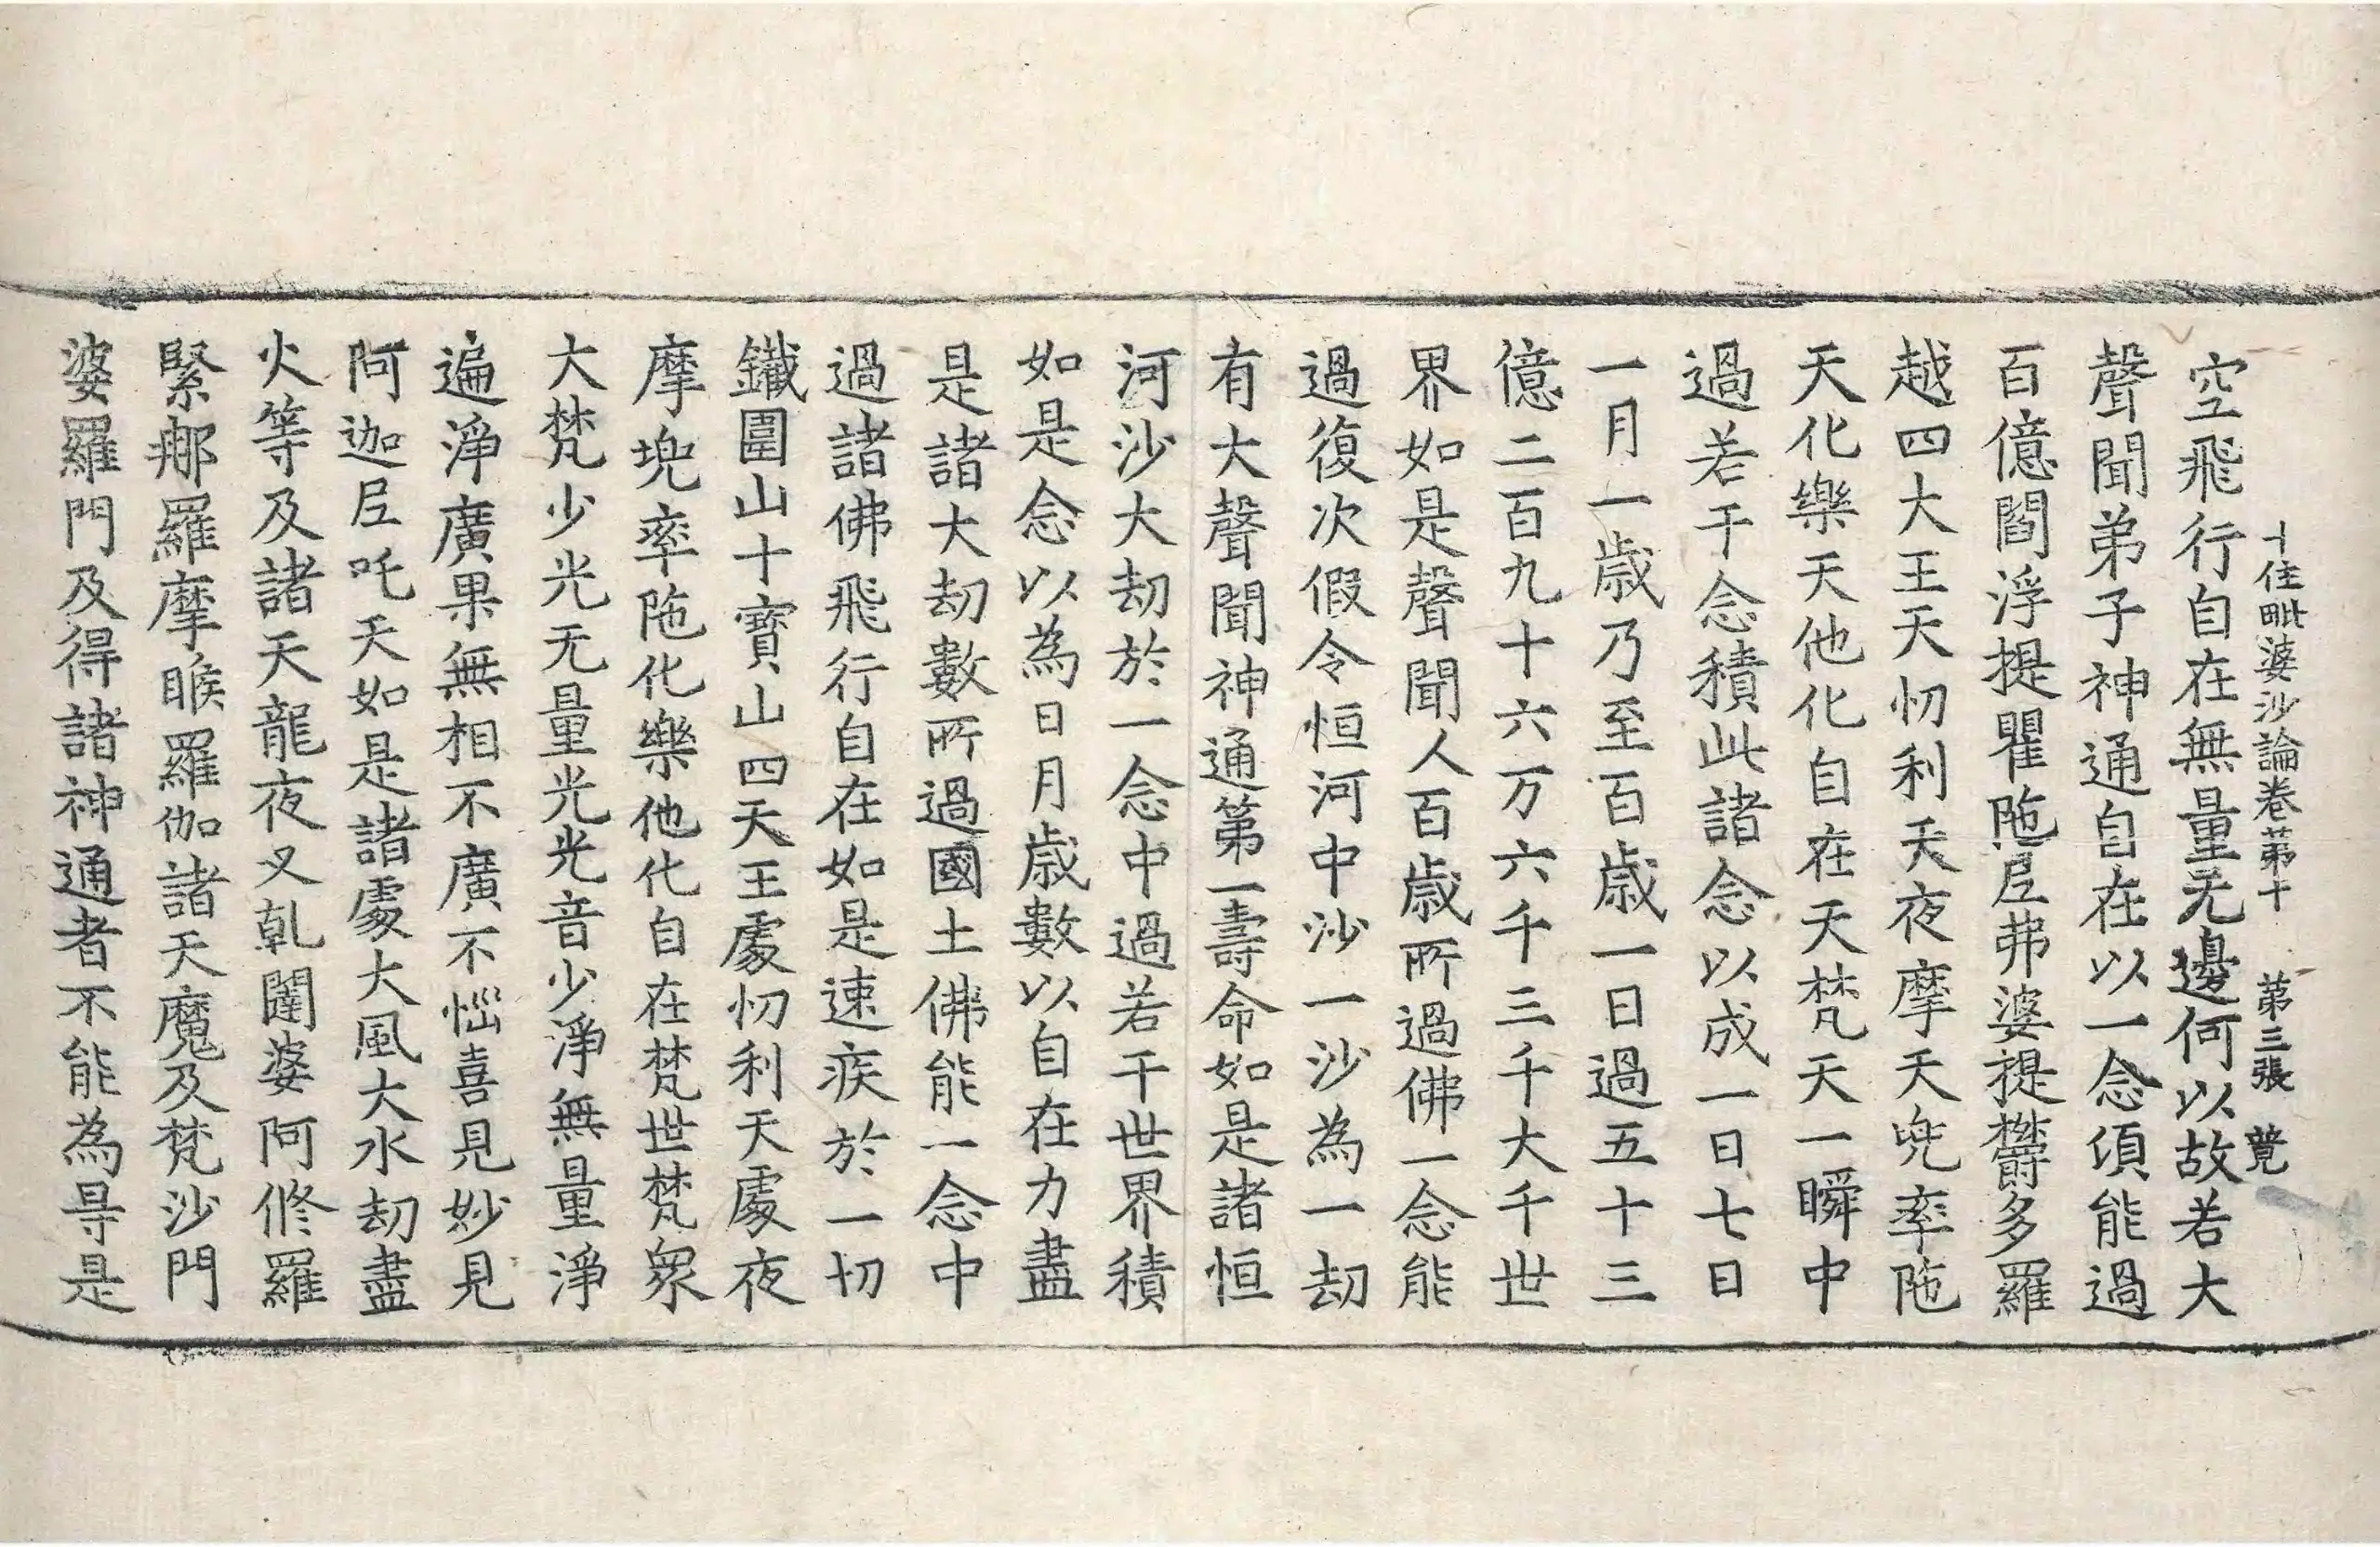 十住毗婆沙論卷第十　第三張　覓
空飛行自在無量无邊何以故若大
聲聞弟子神通自在以一念頃能過
百億閻浮提瞿陁尼弗婆提欝多羅
越四大王天忉利天夜摩天兜率陁
天化樂天他化自在天梵天一瞬中
過若干念積此諸念以成一日七日
一月一歲乃至百歲一日過五十三
億二百九十六万六千三千大千世
界如是聲聞人百歲所過佛一念能
過復次假令恒河中沙一沙為一劫
有大聲聞神通第一壽命如是諸恒
河沙大劫於一念中過若干世界積
如是念以為日月歲數以自在力盡
是諸大劫數所過國土佛能一念中
過諸佛飛行自在如是速疾於一切
鐵圍山十寶山四天王處忉利天處夜
摩兜率陁化樂他化自在梵世梵衆
大梵少光无量光光音少淨無量淨
遍淨廣果無相不廣不惱喜見妙見
阿迦尼吒天如是諸處大風大水劫盡
火等及諸天龍夜叉乹闥婆阿脩羅
緊那羅摩睺羅伽諸天魔及梵沙門
婆羅門及得諸神通者不能為㝵是